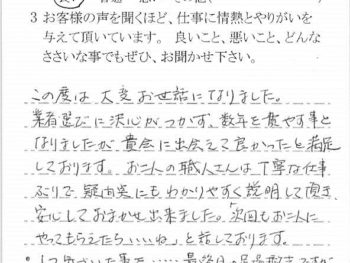 3 お客様の声を聞くほど、仕事に情熱とやりがいを
与えて頂いています。 良いこと、悪いこと、どんな
ささいな事でもぜひ、お聞かせ下さい。
この度は大変お世話になりました。
業者選びに決心がつかず、数年を費やす事と
なりましたが、貴会に出会えて良かったと満足
しております。お二人の職人さんは丁寧な仕事
ぶりで、疑問点にもわかりやすく説明して頂き、
安心しておまかせ出来ました。「次回もお二人に
やってもらえたらいいね」と話しております。